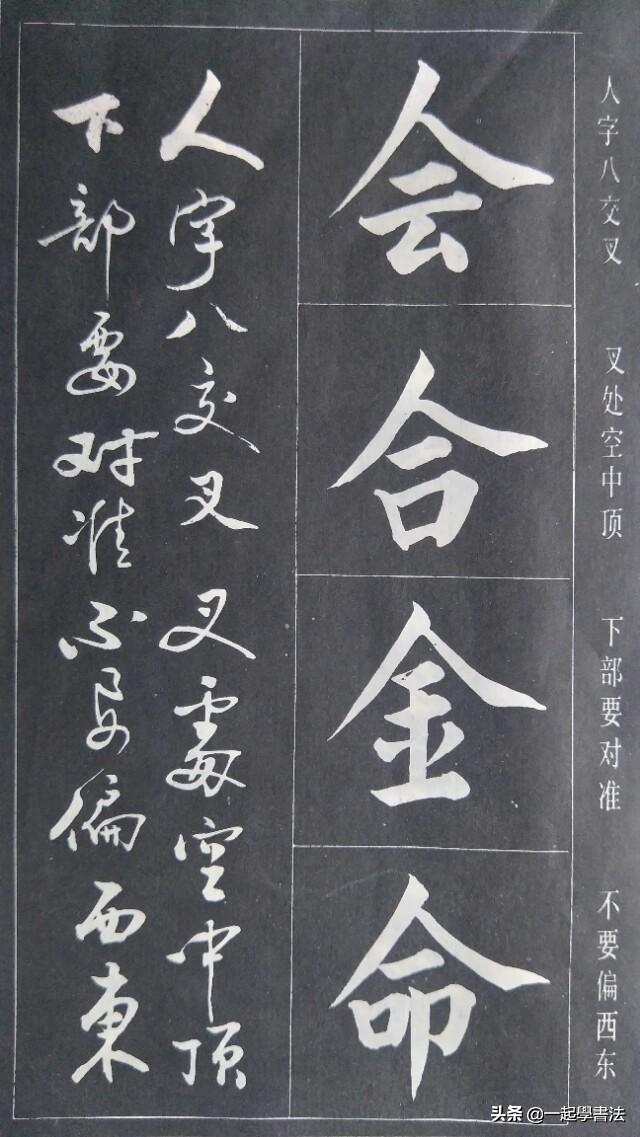 人字八交叉 叉处空中顶 下部要对准 不要偏西东
会
合
金
命
人字八交叉叉處空中顶
下部要对准不要偏西東
头条 @一起學書法